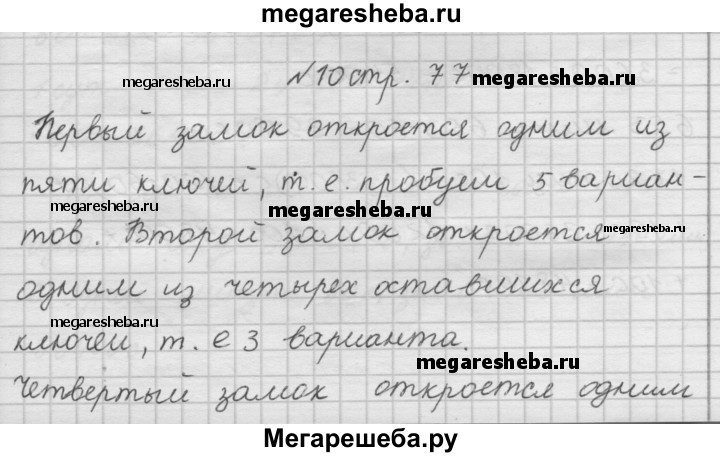 megaresheba.ru
№10 стр. 77 megaresheba.ru
megaresheba.ru
Первый замок откроется одним из
пяти ключей, т. е. пробуем 5 вариан-
megaresheba.ru megaresheba.ru
тов. Второй замок откроется megaresheba.ru
одним из четырех оставшихся
megaresheba.ru
ключей, т. е 3 варианта.
megaresheba.ru
Четвертый замок откроется одним
Мегарешеба.ру